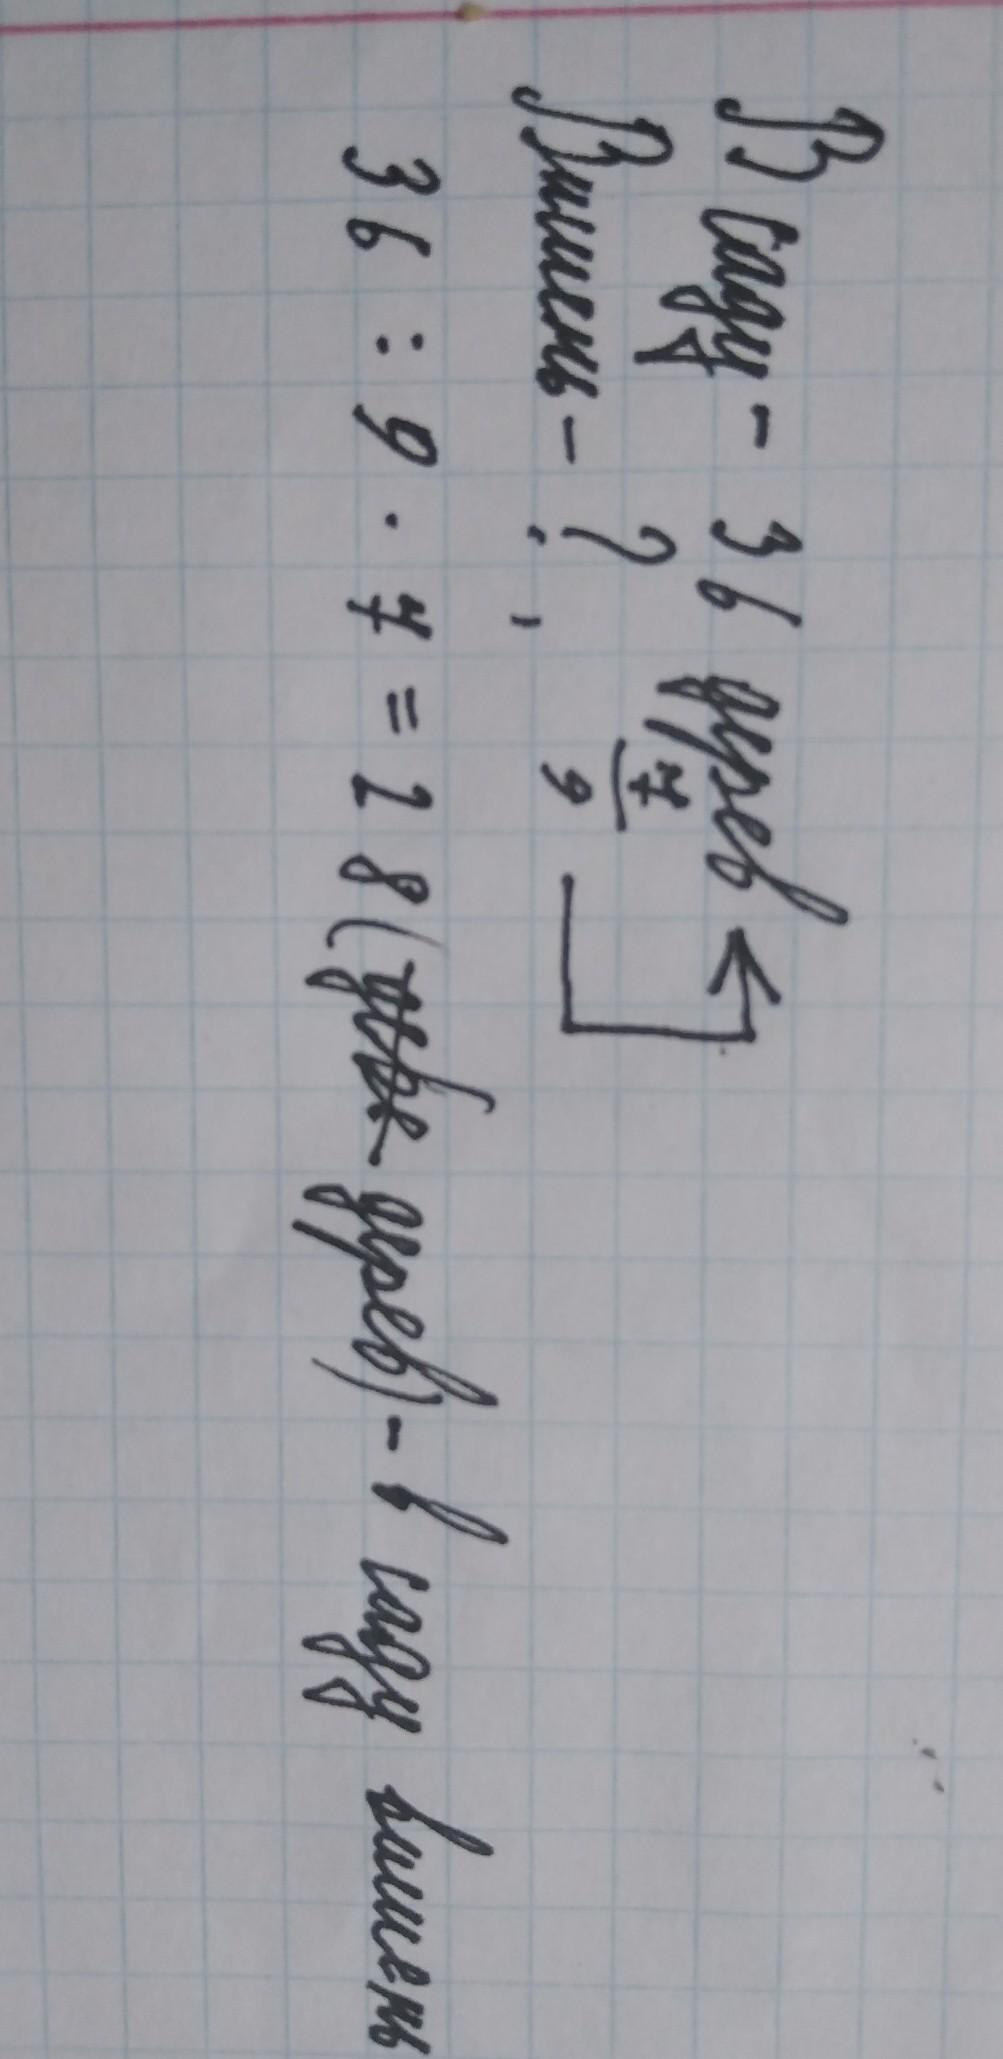 В саду - 36 дерев
Вишень - ?, 7/9
36 : 9 · 7 = 28 (дерев) - в саду вишень